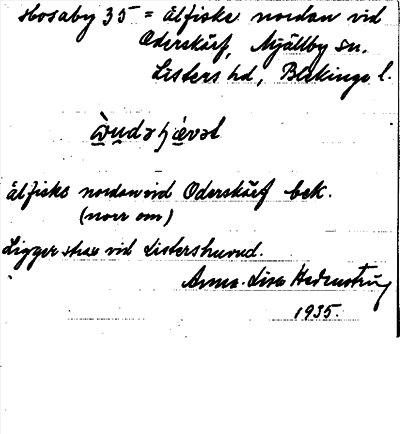 Hosaby 35 = ålfiske nordan vid
Oderskärf, Mjällby sn.
Listers hd, Blekinge l.
ålfiske nordan vid Oderskärf bek.
(norr om)
Ligger strax vid Listershuvud.
Anna-Lisa Hedenström
1935.